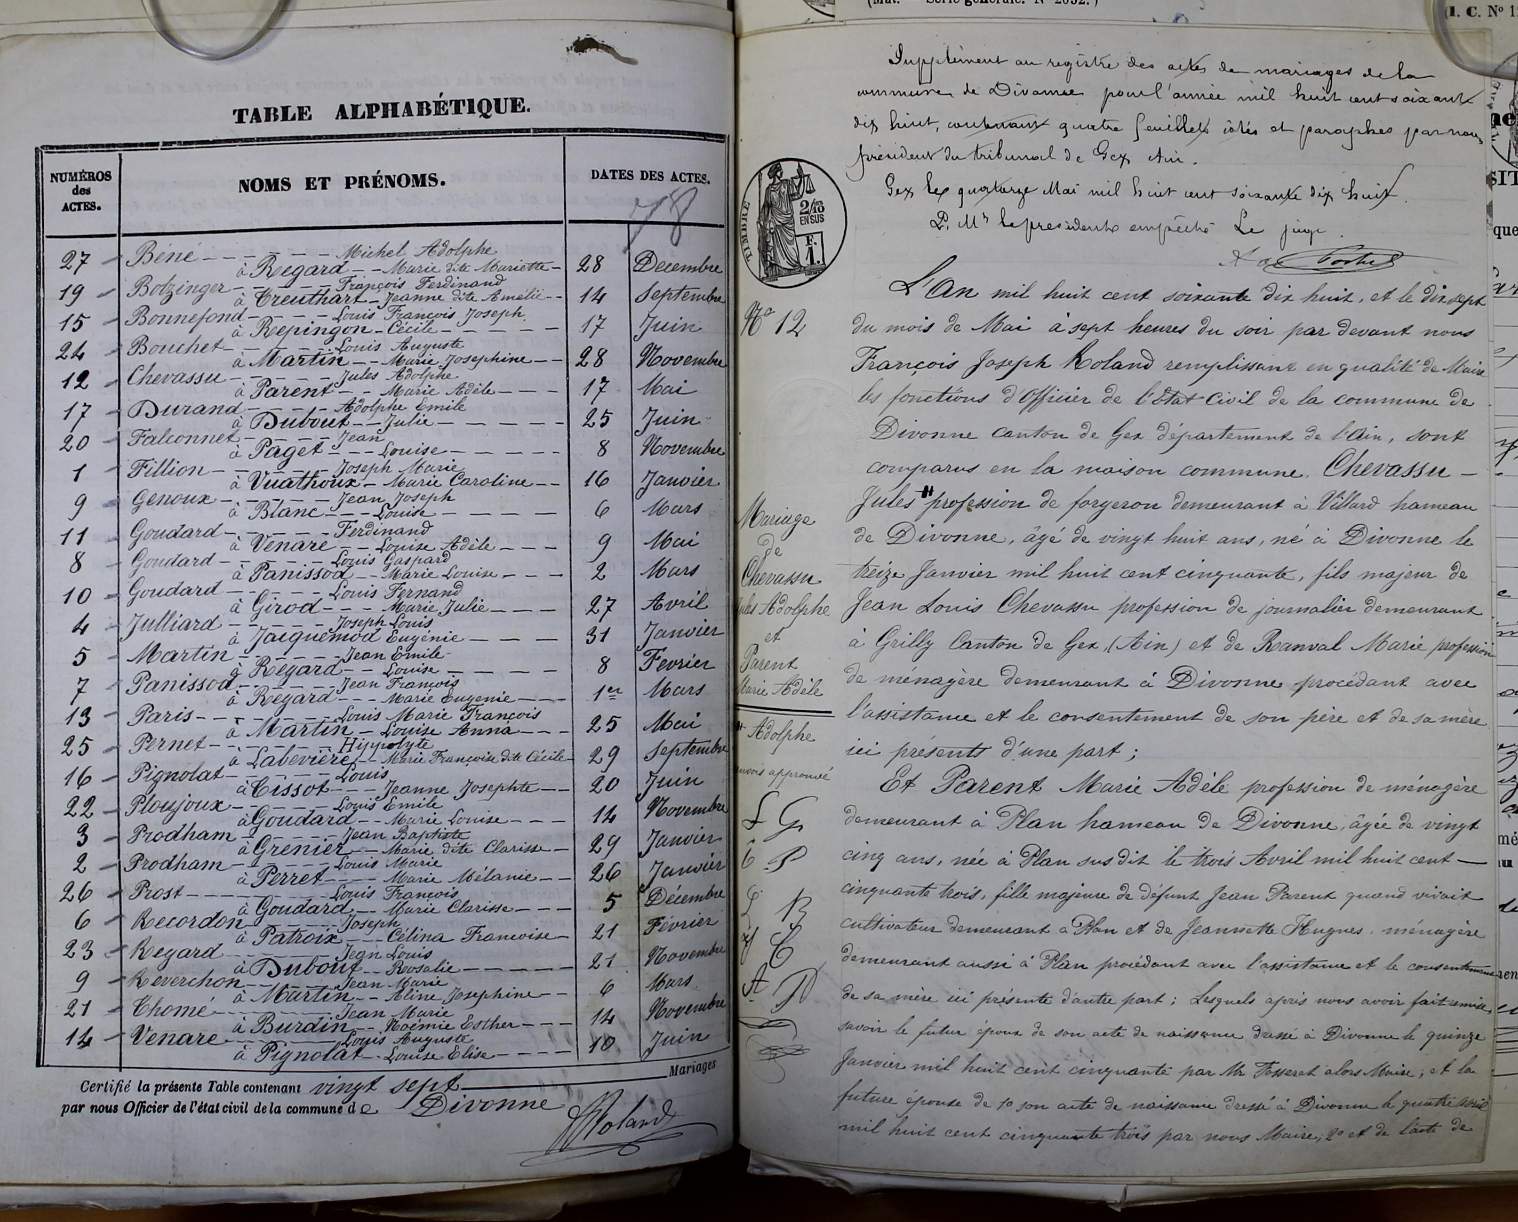 TABLE ALPHABÉTIQUE.
NUMÉROS des ACTES.
NOMS ET PRÉNOMS.
DATES DES ACTES.
78
27 Béné Michel Adolphe
à Regard Marie dite Mariette 28 Décembre
19 Botzinger François Ferdinand
à Treuthart Jeanne dite Amélie 14 Septembre
15 Bonnefond Louis François Joseph
à Repingon Cécile 17 Juin
24 Bouchet Louis Auguste
à Martin Marie Josephine 28 Novembre
12 Chevassu Jules Adolphe
à Parent Marie Adèle 17 Mai
17 Durand Adolphe Emile
à Dubout Julie 25 Juin
20 Falconnet Jean
à Paget Louise 8 Novembre
1 Fillion Joseph Marie
à Vuathoux Marie Caroline 16 Janvier
9 Genoux Jean Joseph
à Blanc Louise 6 Mars
11 Goudard Ferdinand
à Venare Louise Adèle 9 Mai
8 Goudard Louis Gaspard
à Panissod Marie Louise 2 Mars
10 Goudard Louis Fernand
à Girod Marie Julie 27 Avril
4 Julliard Joseph Louis
à Jacquemod Eugénie 31 Janvier
5 Martin Jean Emile
à Regard Louise 8 Fevrier
7 Panissod Jean François
à Regard Marie Eugenie 1er Mars
13 Paris Louis Marie François
à Martin Louise Anna 25 Mai
25 Pernet Hippolyte
à Labevière Marie Françoise dite Cécile 29 Septembre
16 Pignolat Louis
à Tissot Jeanne Josephte 20 Juin
22 Ploujoux Louis Emile
à Goudard Marie Louise 14 Novembre
3 Prodham Jean Baptiste
à Grenier Marie dite Clarisse 29 Janvier
2 Prodham Louis Marie
à Perret Marie Mélanie 26 Janvier
26 Prost Louis François
à Goudard Marie Clarisse 5 Décembre
6 Recordon Joseph
à Patroix Célina Francoise 21 Février
23 Regard Jean Louis
à Dubout Rosalie 21 Novembre
9 Reverchon Jean Marie
à Martin Aline Josephine 6 Mars
21 Thomé Jean Marie
à Burdin Noémie Esther 14 Novembre
14 Venare Louis Auguste
à Pignolat Louise Elise 10 Juin
Certifié la présente Table contenant vingt sept Mariages
par nous Officier de l'état civil de la commune de Divonne
Roland
(Mat. Série générale. N° 2052.)
(I. C. N° 1
Supplément au registre des actes de mariages de la
commune de Divonne pour l'année mil huit cent soixante
dix huit, contenant quatre feuillets cotés et paraphés par nous
président du tribunal de Gex Ain.
Gex le quatorze Mai mil huit cent soixante dix huit.
P. Mr le président empêché Le juge
TIMBRE
2/10
EN SUS
F.
1.
L'An mil huit cent soixante dix huit, et le dix sept
N° 12
du mois de Mai à sept heures du soir par devant nous
François Joseph Roland remplissant en qualité de Maire
les fonctions d'Officier de l'Etat Civil de la commune de
Divonne canton de Gex département de l'Ain, sont
comparus en la maison commune, Chevassu
Jules # profession de forgeron demeurant à Villard hameau
de Divonne, âgé de vingt huit ans, né à Divonne le
treize Janvier mil huit cent cinquante, fils majeur de
Jean Louis Chevassu profession de journalier demeurant
à Grilly Canton de Gex (Ain) et de Ranval Marie profession
de ménagère demeurant à Divonne procédant avec
l'assistance et le consentement de son père et de sa mère
ici présents d'une part ;
Mariage
de
Chevassu
Jules Adolphe
et
Parent
Marie Adèle
# Adolphe
renvoi approuvé
Et Parent Marie Adèle profession de ménagère
demeurant à Plan hameau de Divonne, âgée de vingt
cinq ans, née à Plan susdit le trois Avril mil huit cent
cinquante trois, fille majeure de défunt Jean Parent quand vivait
cultivateur demeurant à Plan et de Jeannette Hugues ménagère
demeurant aussi à Plan procédant avec l'assistance et le consentement
de sa mère ici présente d'autre part ; Lesquels après nous avoir fait remise
savoir le futur époux de son acte de naissance dressé à Divonne le quinze
Janvier mil huit cent cinquante par Mr Fosserat alors Maire, et la
future épouse de 1° son acte de naissance dressé à Divonne le quatre Avril
mil huit cent cinquante trois par nous Maire, 2° et de l'acte de